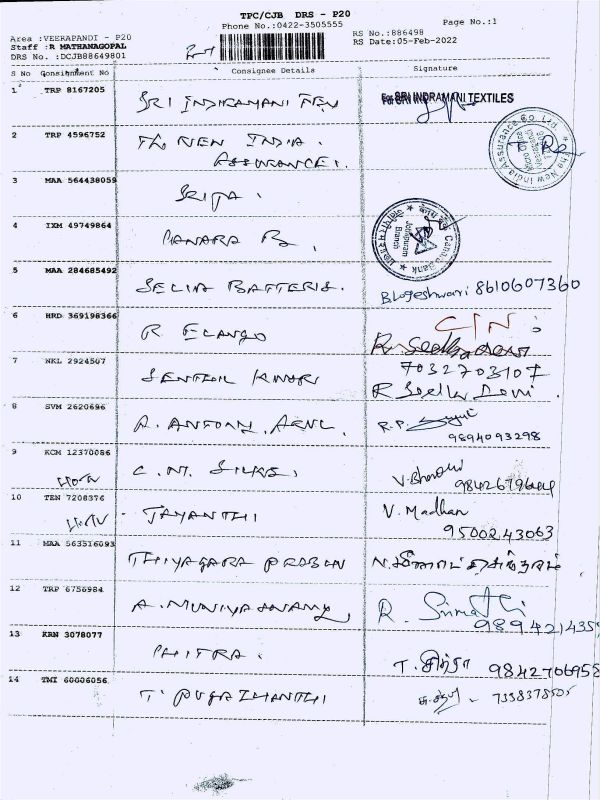 TPC/CJB DRS - P20
Phone No.:0422-3505555
Page No.:1
Area :VEERAPANDI - P20
Staff :R MATHANAGOPAL
DRS No. :DCJB88649801
RS No.:886498
RS Date:05-Feb-2022
S No Consignment No Consignee Details Signature
1 TRP 8167205 SRI INDIRAMANI TEX For SRI INDRAMANI TEXTILES
2 TRP 4596752 THE NEW INDIA.
ASSURANCE.
The New India Assurance Co. Ltd.
3 MAA 564438059
4 IXM 49749864 CANARA B.
Canara Bank
Branch
5 MAA 284685492 SELIA BATTERIS. Blogeshwari 8610607360
6 HRD 369198366 R. ELANGO
7 NKL 2924507 SENTHIL KUMAR 7032703107
8 SVM 2620696 A. ANTONY R.P.
9894093298
9 KCM 12370086 C.M. SILKS. V. Bharathi
10 TEN 7208376 JAYANTHI V. Madhan
9500243063
11 MAA 563516093 THIYAGARA
12 TRP 6756984 A. MUNIYASWAMY R. Sumathi
989421435
13 KRN 3078077 CHITRA. T. சித்ரா 9842706958
14 TMI 60006056 T. PUGAZHANTHI 7338378505